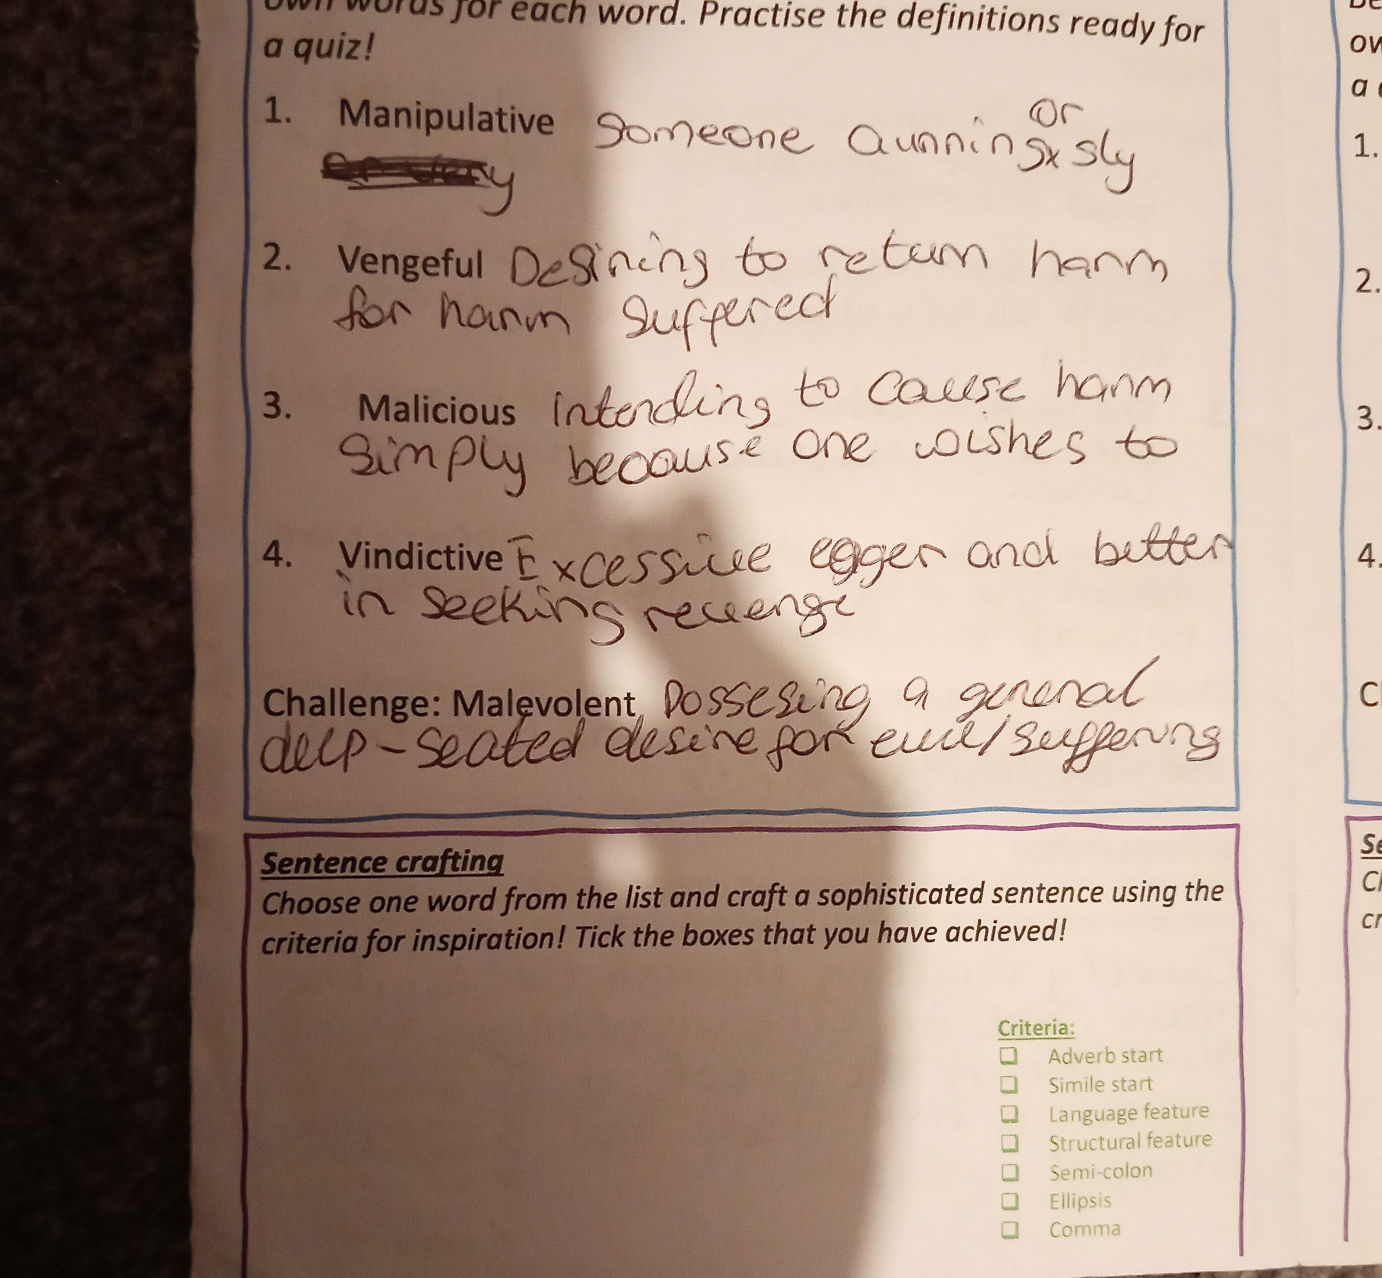 own words for each word. Practise the definitions ready for
a quiz!
1. Manipulative Someone cunning or sly
2. Vengeful Desiring to return harm
for harm suffered
3. Malicious Intending to cause harm
simply because one wishes to
4. Vindictive Excessive egger and bitter
in seeking revenge
Challenge: Malevolent Possesing a general
deep-seated desire for evil/suffering
Sentence crafting
Choose one word from the list and craft a sophisticated sentence using the
criteria for inspiration! Tick the boxes that you have achieved!
Criteria:
Adverb start
Simile start
Language feature
Structural feature
Semi-colon
Ellipsis
Comma
a
1.
2.
3.
4.